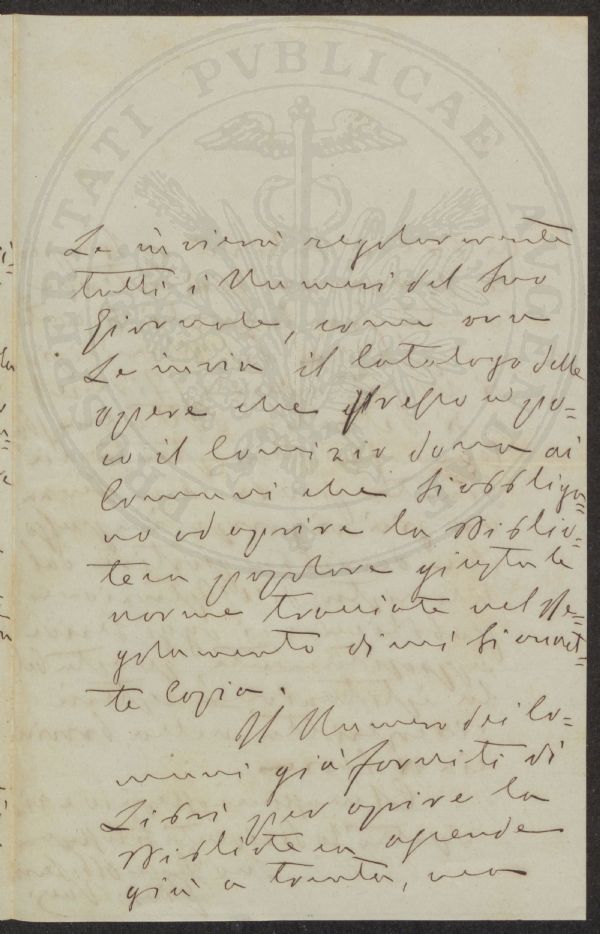 PROSPERITATI PVBLICAE AVGENDAE
Le invierà regolarmente
tutti i Numeri del Suo
Giornale, come ora
Le invia il Catalogo delle
opere che presso a po=
co il Comizio dona ai
Comuni che si obbliga=
no ad aprire la Biblio=
teca popolare giusta le
norme tracciate nel Re=
golamento di cui si annet=
te Copia.
Il Numero dei Co=
muni già forniti di
Libri per aprire la
Biblioteca ascende
già a trenta, ma